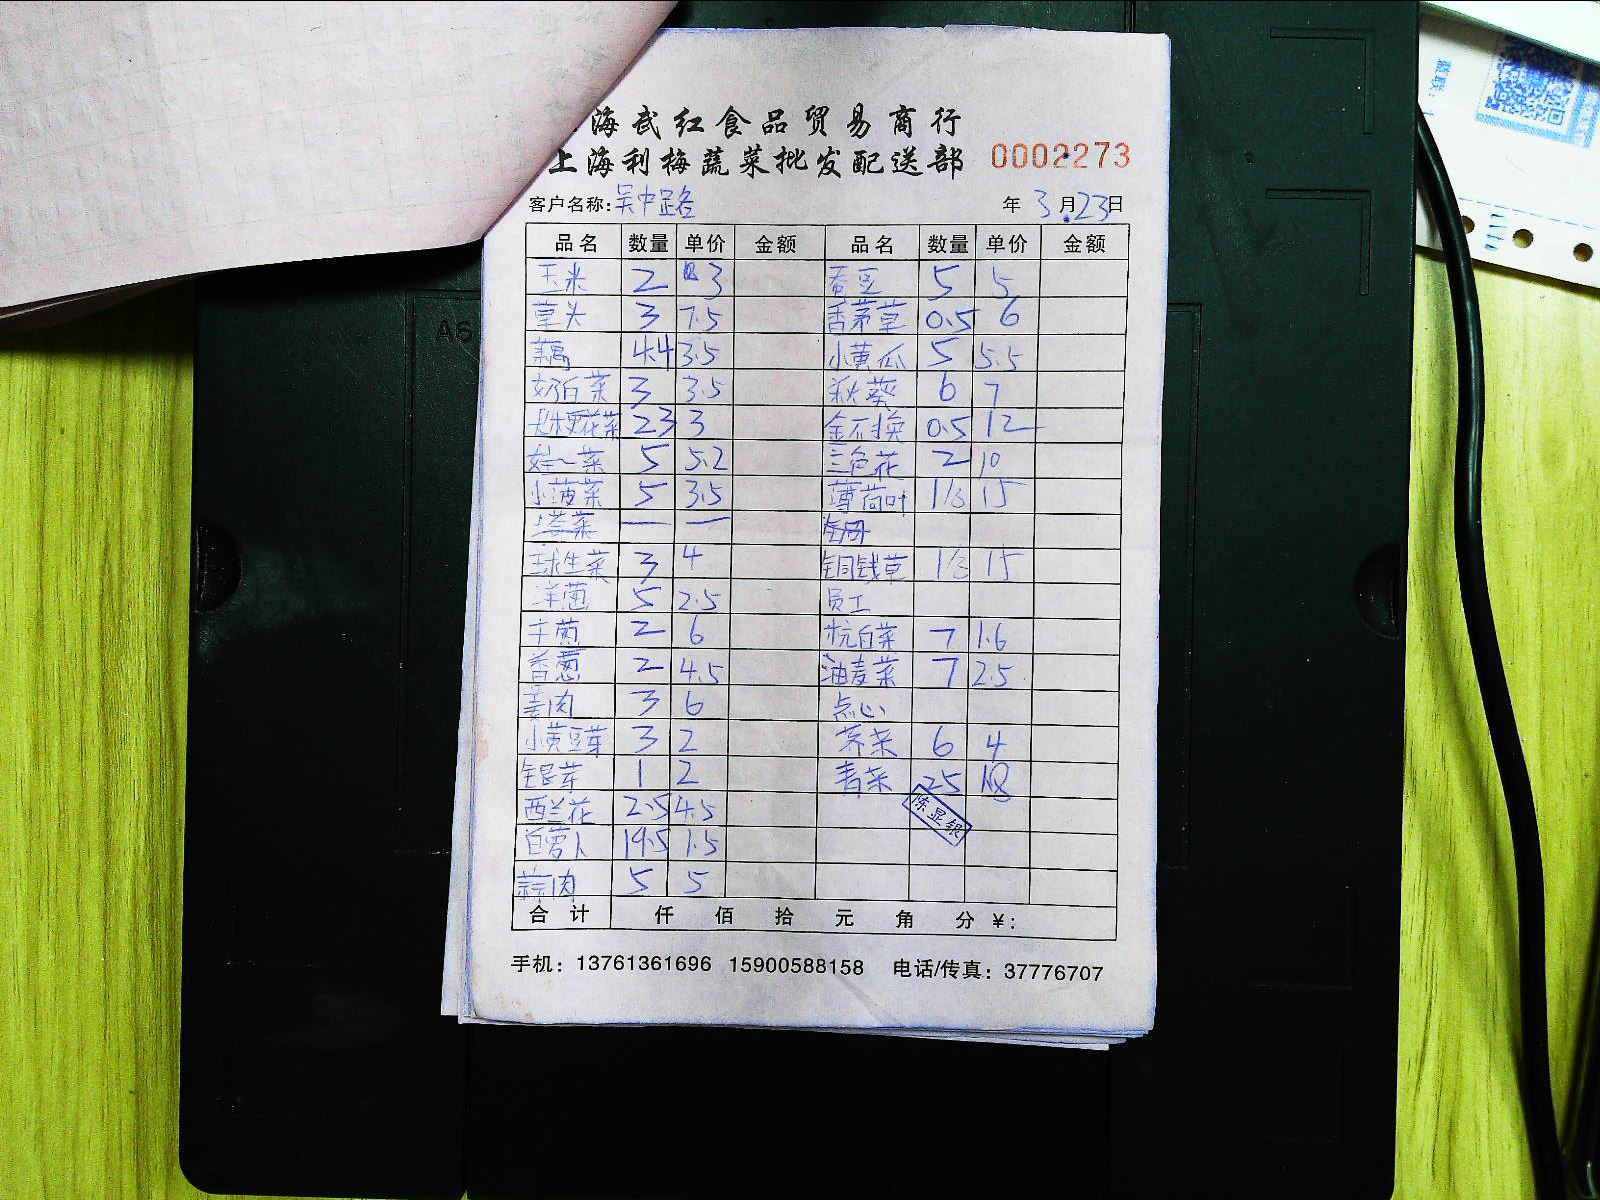 海武红食品贸易商行
上海利梅蔬菜批发配送部 0002273
客户名称:吴中路 年 3月23日
品名 数量 单价 金额 品名 数量 单价 金额
玉米 2 3 香豆 5 5
草头 3 7.5 香茅草 0.5 6
藕 4.4 3.5 小黄瓜 5 5.5
奶白菜 3 3.5 秋葵 6 7
花菜 23 3 金不换 0.5 12
娃~菜 5 5.2 三色花 2 10
小菠菜 5 3.5 薄荷叶 1/3 15
塔菜 — —
球生菜 3 4 铜钱草 1/3 15
洋葱 5 2.5 员工
2 6 杭白菜 7 1.6
香葱 2 4.5 油麦菜 7 2.5
姜肉 3 6 点心
小黄豆芽 3 2 荠菜 6 4
银芽 1 2 青菜 25
西兰花 2.5 4.5 陈显银
白萝卜 19.5 1.5
蒜肉 5 5
合计 仟 佰 拾 元 角 分 ¥:
手机: 13761361696 15900588158 电话/传真: 37776707
A6